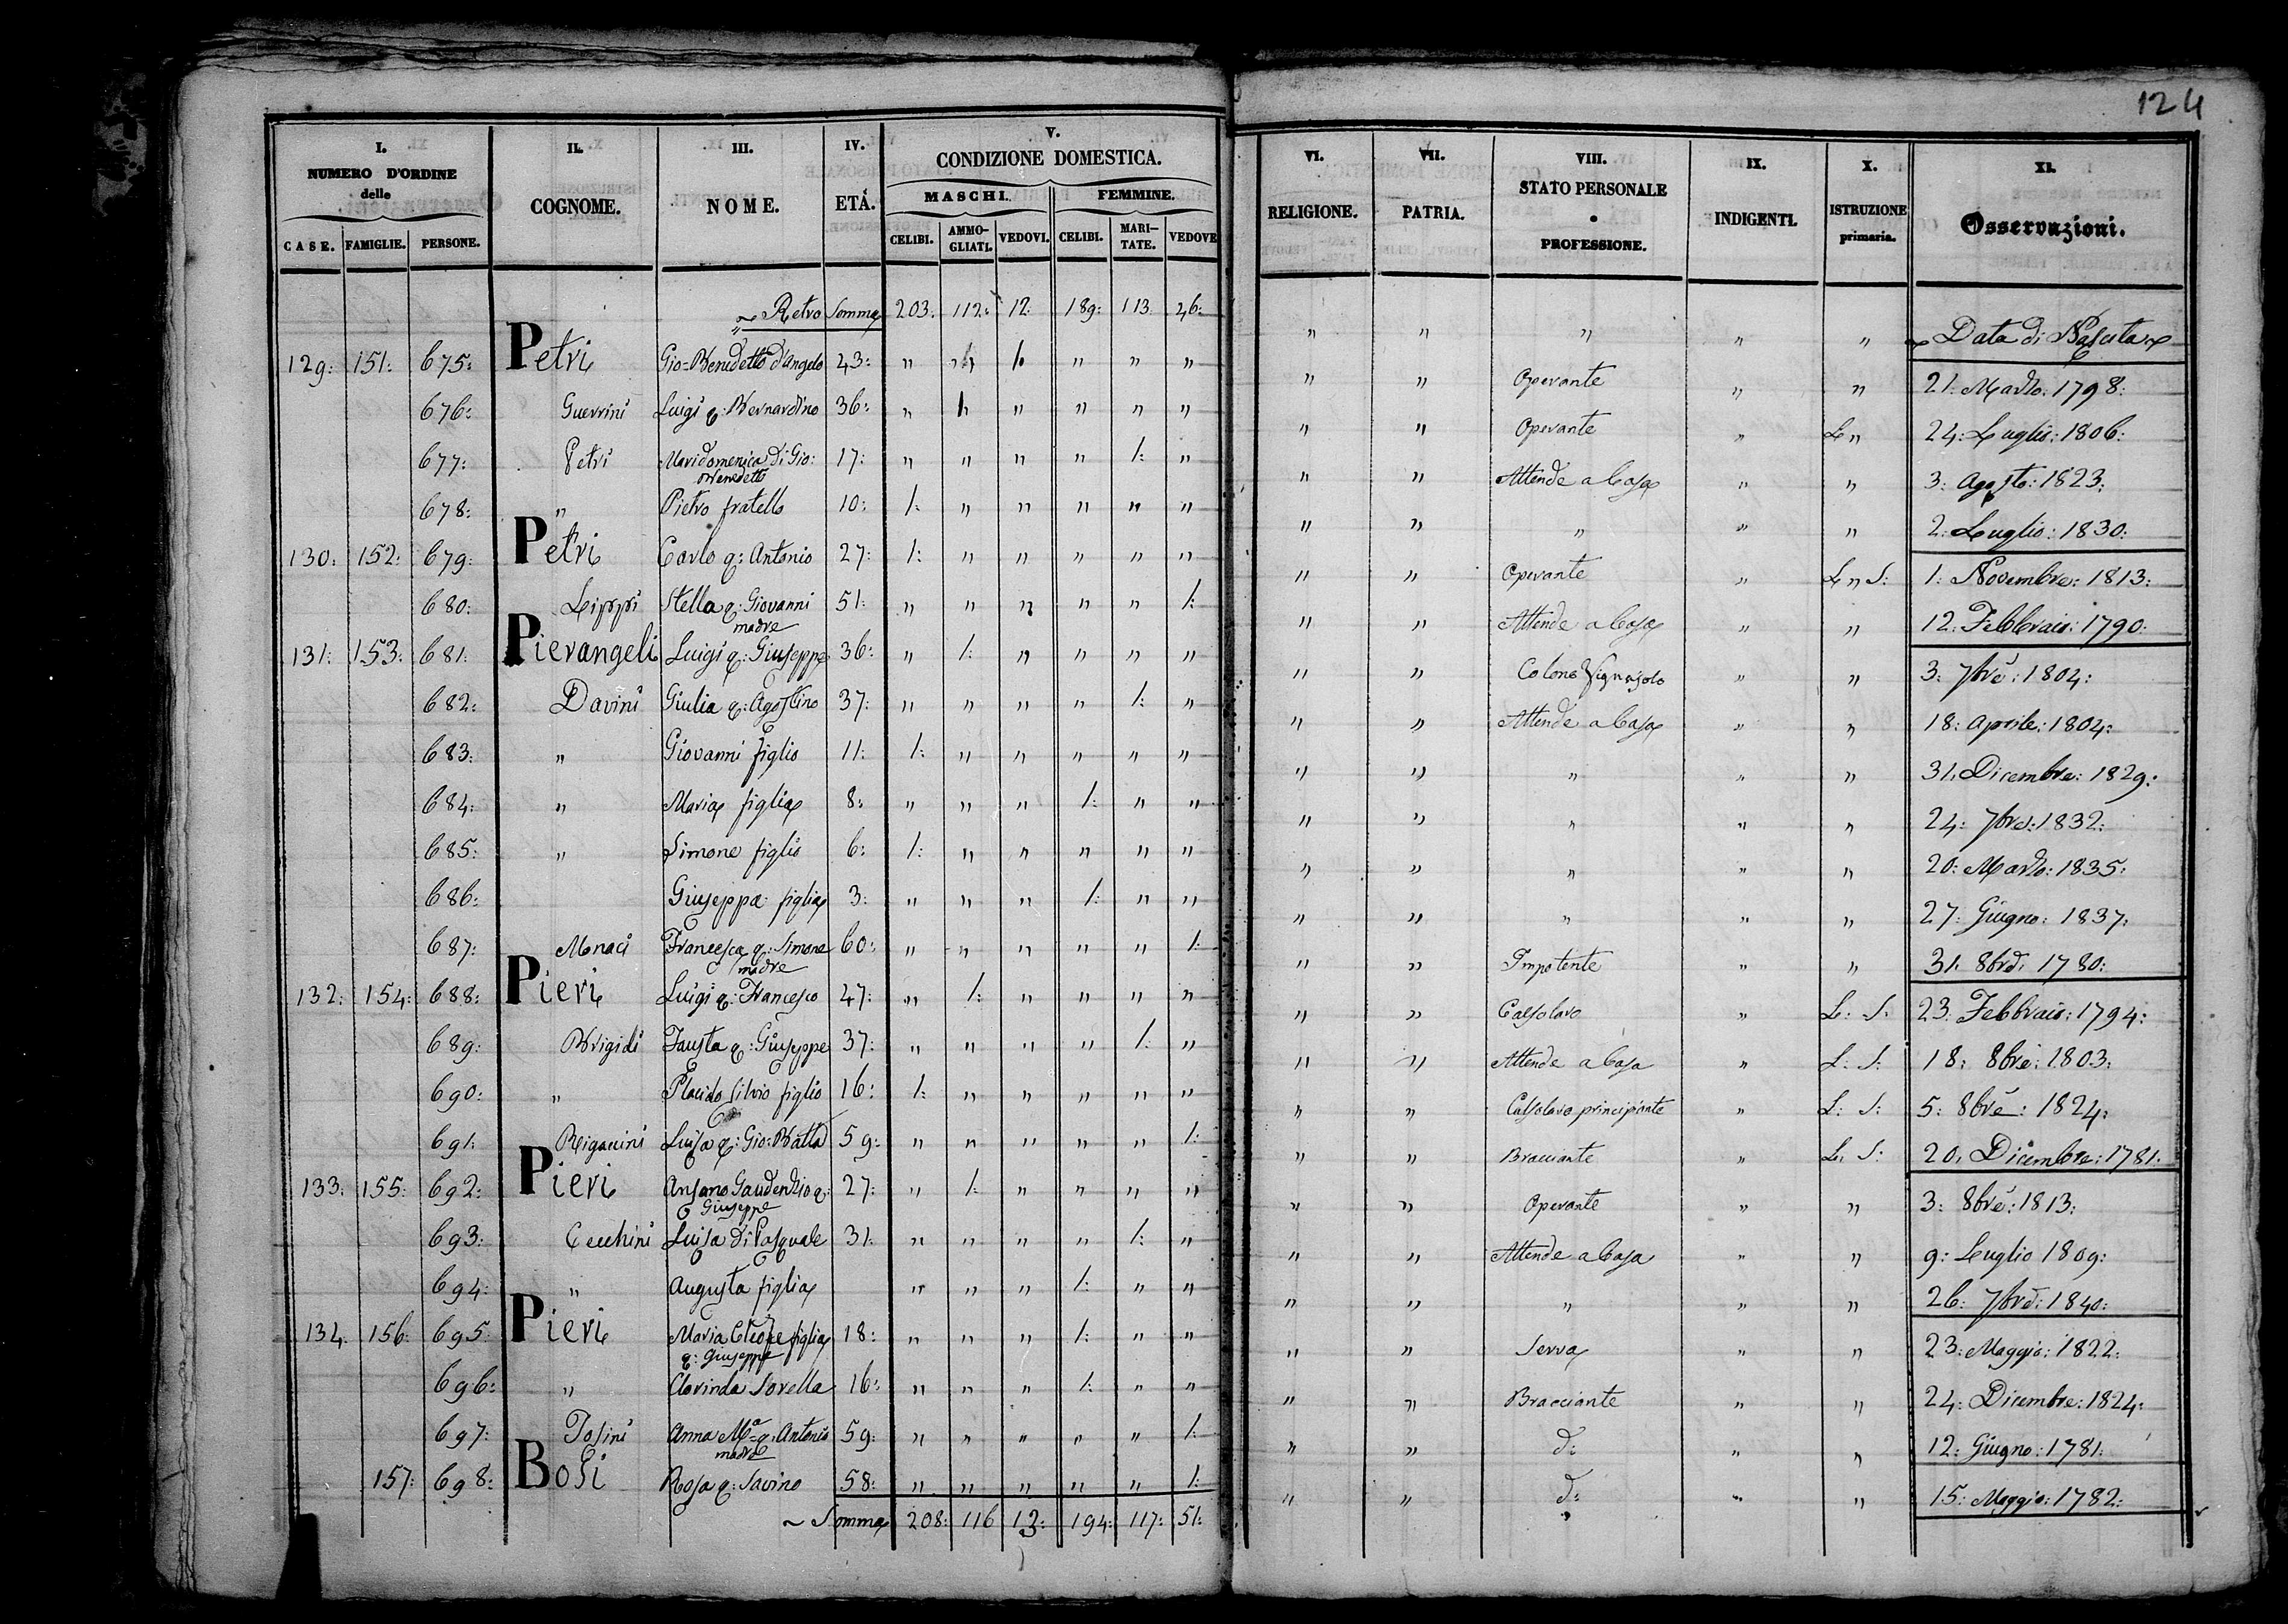 124
I. NUMERO D'ORDINE delle
II. COGNOME.
III. NOME.
IV. ETÁ.
V. CONDIZIONE DOMESTICA.
MASCHI. FEMMINE.
CASE. FAMIGLIE. PERSONE. CELIBI. AMMO-GLIATI. VEDOVI. CELIBI. MARI-TATE. VEDOVE
VI. RELIGIONE.
VII. PATRIA.
VIII. STATO PERSONALE e PROFESSIONE.
IX. INDIGENTI.
X. ISTRUZIONE primaria.
XI. Osservazioni.
Retro Somma 203: 112: 12: 189: 113: 46: " " " " " Data di Nascita
129: 151: 675: Petri Gio=Benedetto d'Angelo 43: " " 1: " " " " " Operante " " 21: Marzo: 1798:
676: Guerrini Luigi q: Bernardino 36: " 1: " " " " " " Operante " L " 24: Luglio: 1806:
677: Petri Maridomenica di Gio: Benedetto 17: " " " " 1: " " " Attende a Casa " " 3: Agosto: 1823:
678: " Pietro fratello 10: 1: " " " " " " " " " " 2: Luglio: 1830:
130: 152: 679: Petri Carlo q: Antonio 27: 1: " " " " " " " Operante " L " S: 1: Novembre: 1813:
680: Lippi Stella q: Giovanni madre 51: " " " " " 1: " " Attende a Casa " " 12: Febbraio: 1790:
131: 153: 681: Pierangeli Luigi q: Giuseppe 36: " 1: " " " " " " Colono Vignajolo " " 3: 7bre: 1804:
682: Davini Giulia q: Agostino 37: " " " " 1: " " " Attende a Casa " " 18: Aprile: 1804:
683: " Giovanni figlio 11: 1: " " " " " " " " " " 31: Dicembre: 1829:
684: " Maria figlia 8: " " " 1: " " " " " " " 24: 7bre: 1832:
685: " Simone figlio 6: 1: " " " " " " " " " " 20: Marzo: 1835:
686: Giuseppa figlia 3: " " " 1: " " " " " " " 27: Giugno: 1837:
687: Monaci Francesca q: Simone madre 60: " " " " " 1: " " Impotente " " 31: 8bre: 1780:
132: 154: 688: Pieri Luigi q: Francesco 47: " 1: " " " " " " Calsolaro " L: S: 23: Febbraio: 1794:
689: Brigidi Fausta q: Giuseppe 37: " " " " 1: " " " Attende a Casa " L: S: 18: 8bre: 1803:
690: " Placido Silvio figlio 16: 1: " " " " " " " Calsolaro principiante " L: S: 5: 8bre: 1824:
691: Riganini Luisa q: Gio: Batta 59: " " " " " 1: " " Bracciante " L: S: 20: Dicembre: 1781:
133: 155: 692: Pieri Ansano Gaudenzio q: Giuseppe 27: " 1: " " " " " " Operante " " 3: 8bre: 1813:
693: Cecchini Luisa di Pasquale 31: " " " " 1: " " " Attende a Casa " " 9: Luglio 1809:
694: " Augusta figlia " " " 1: " " " " " " " 26: 7bre: 1840:
134: 156: 695: Pieri Maria Cleofe figlia q: Giuseppe 18: " " " 1: " " " " Serva " " 23: Maggio: 1822:
696: " Clorinda Sorella 16: " " " 1: " " " " Bracciante " " 24: Dicembre: 1824:
697: Tosini Anna Ma q: Antonio madre 59: " " " " " 1: " " d: " " 12: Giugno: 1781:
157: 698: Bosi Rosa q: Savino 58: " " " " " 1: " " d: " " 15: Maggio: 1782:
Somma 208: 116 13: 194: 117: 51: